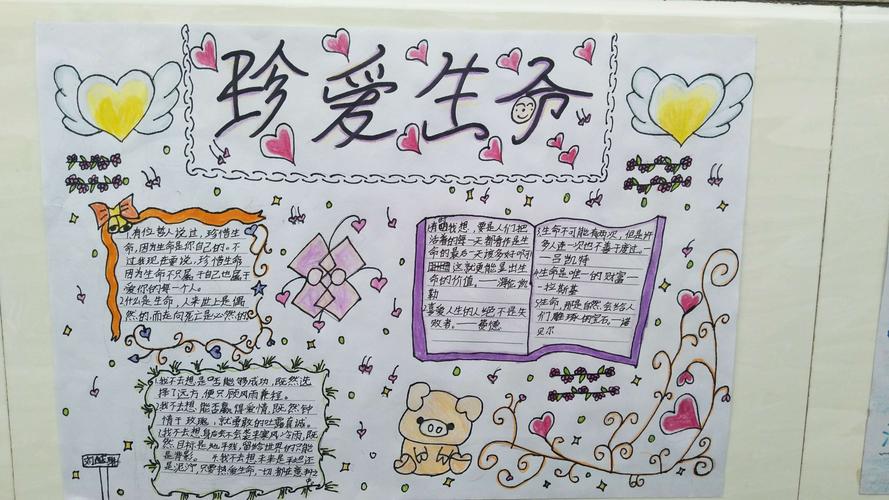 珍爱生命
1.有位哲人说过,珍惜生
命,因为生命是你自己的。不
过我现在要说,珍惜生命
因为生命不只属于自己也属于
爱你的每一个人。
2.什么是生命,人来世上是偶
然的,而走向死亡是必然的
我想,要是人们把
活着的每一天都看作是生
命的最后一天该多好啊!
这就更能显出生
命的价值。——海伦凯
勒
2.喜爱人生的人绝不是失
败者。——费德
3.生命不可能有两次,但是许
多人连一次也不善于度过。—
—吕凯特
4.生命是唯一的财富—
—拉斯基
5.生命,那是自然会给人
们雕琢的宝石。—诺
贝尔
1.我不去想,是否能够成功,既然选
择了远方,便只顾风雨兼程。
2.我不去想,能否赢得爱情,既然钟
情于玫瑰,就勇敢的吐露真诚。
3.我不去想身后会不会袭来寒风冷雨,既
然目标是地平线,留给世界的只能
是背影。4.我不去想未来是平坦还
是泥泞,只要热爱生命,一切都在意料之